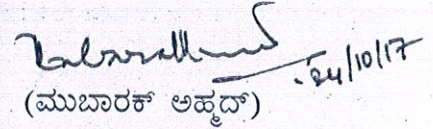 24/10/17
(ಮುಬಾರಕ್ ಅಹ್ಮದ್)